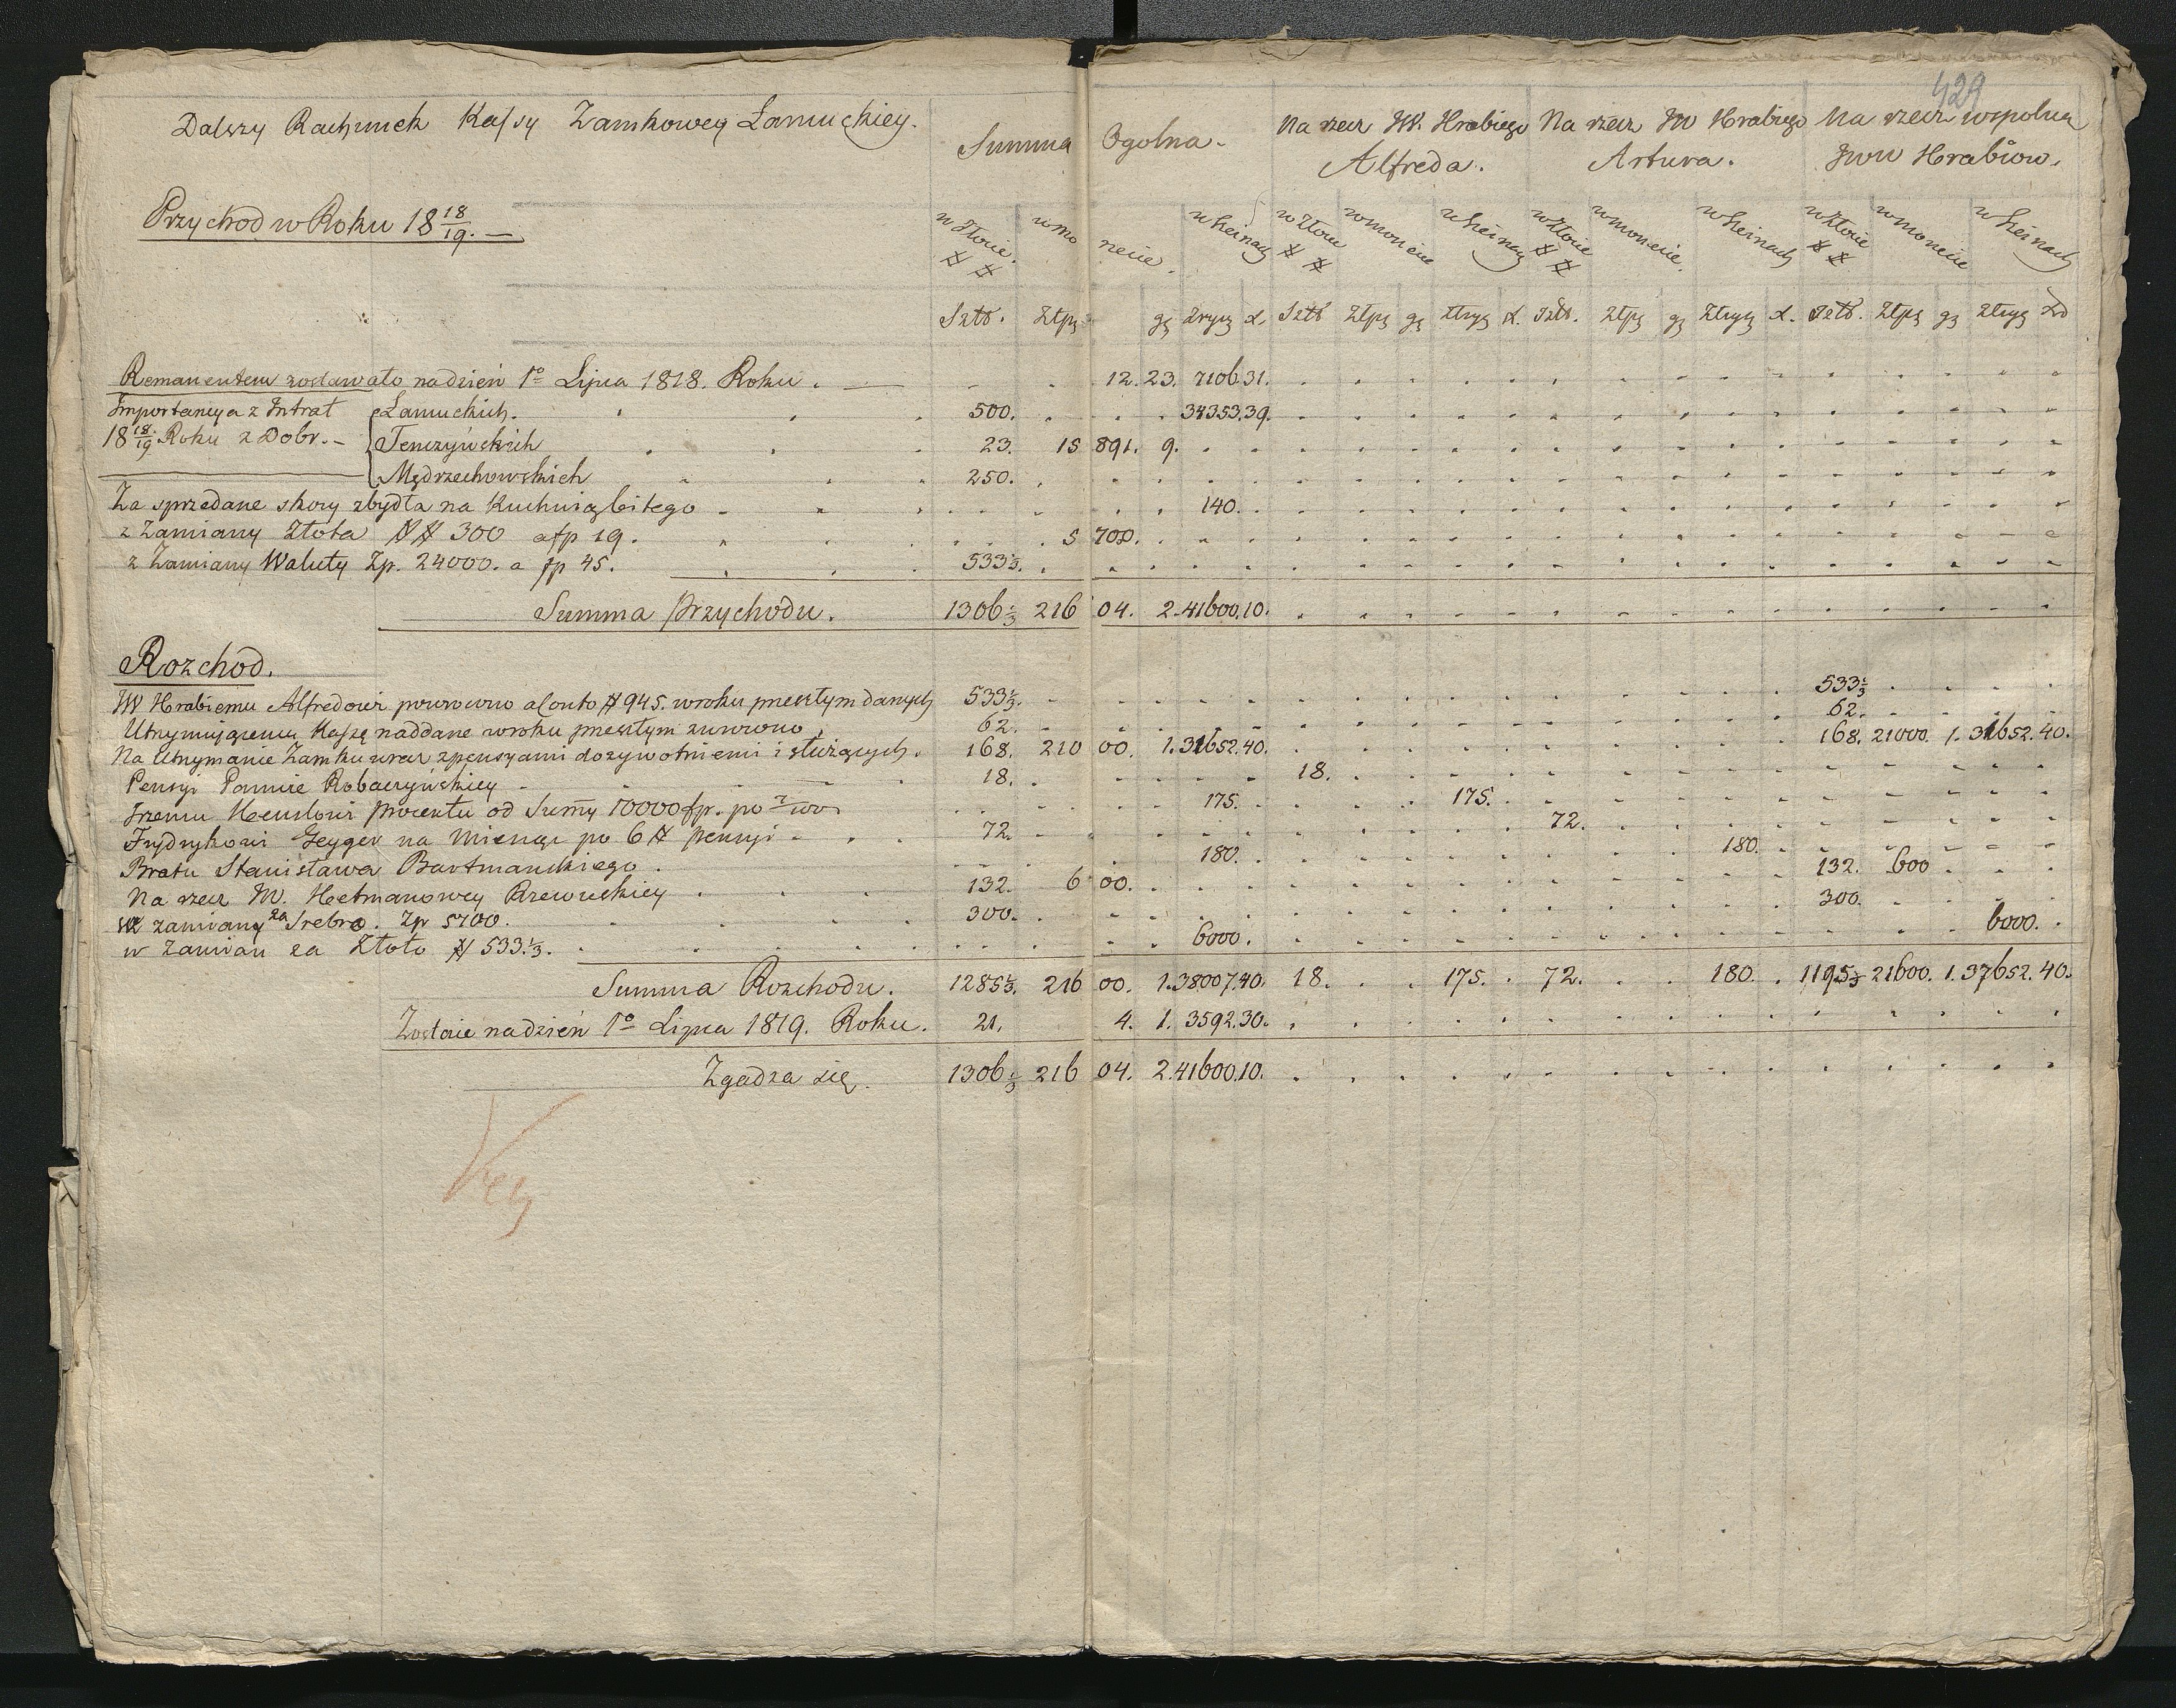 429
Dalszy Rachunek Kassy Zamkowey Łancuckiey.
Summa Ogolna.
Na rzecz JW. Hrabiego Alfreda.
Na rzecz JW Hrabiego Artura.
Na rzecz wspolną Jww Hrabiow.
Przychod w Roku 18 18/19. —
w Złocie. # # w monecie. w Szeinach w Złocie # # w monecie w Szeinach w Złocie # # w monecie. w Szeinach w Złocie # # w monecie w Szeinach
Sztk. Złpg gg Zryg d. Sztk Złpg gg Złryg d. Sztk. Złpg gg Złryg d. Sztk. Złpg gg Złryg d
Remanentem zostawało na dzień 1o Lipca 1818. Roku . — 12. 23. 7106. 31.
Importancya z Intrat Łancuckich. 500. 34353. 39.
18 18/19 Roku z Dobr. – Tenczyńskich 23. 15 891. 9.
Mędrzechowskich 250.
Za sprzedane skory z bydła na Kuchnią bitego 140.
z Zamiany Złota ## 300 a fp 19. 5 700.
z Zamiany Waluty Zp. 24000. a fp 45. 533 1/3.
Summa Przychodu. 1306 1/3 216 04. 2. 41600. 10.
Rozchod.
JW Hrabiemu Alfredowi powrocono a Conto # 945. w roku przeszłym danych 533 1/3. 533 1/3
Utrzymuiącemu Kassę naddane w roku przeszłym zwrocono. 62. 62.
Na Utrzymanie Zamku wraz z pensyami dozywotniemi i służących. 168. 210 00. 1. 31652. 40. 168. 21000. 1. 31652. 40.
Pensyi Pannie Robaczyńskiey 18. 18.
Jzemu Heusłowi procentu od Summy 10000 fp. po 7 175. 175.
Frydrykowi Geyger na Miesiąc po 6 # pensyi 72. 72.
Bratu Stanisława Bartmanskiego 180. 180.
Na rzecz JW. Hetmanowey Rzewuskiey 132. 6 00. 132. 600
w zamianę za Srebro. Zp 5700. 300. 300.
w Zamian za Złoto # 533 1/3. 6000. 6000.
Summa Rozchodu. 1285 1/3. 216 00. 1. 38007. 40. 18. 175. 72. 180. 1195 1/3 21600. 1. 37652. 40.
Zostaie na dzień 1o Lipca 1819. Roku. 21. 4. 1. 3592. 30.
Zgadza się. 1306 1/3 216 04. 2. 41600. 10.